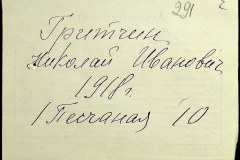 291
Гритчин
Николай Иванович
1918г.
1 Песчаная 10